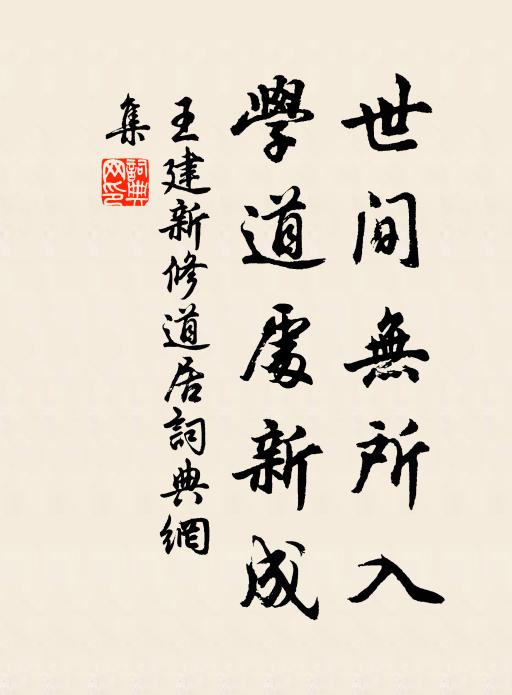 世間無所入
學道處新成
王建新修道居詞典網
集
詞典
网印